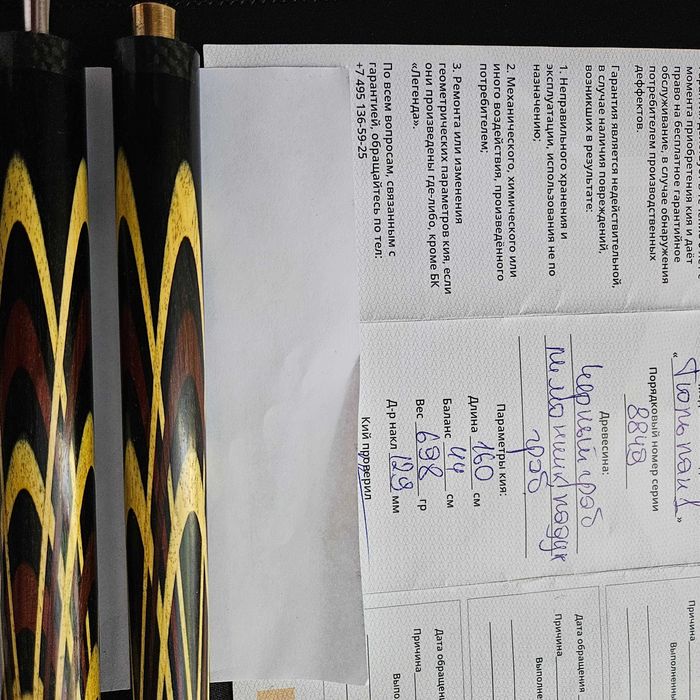 момента приобретения кия и даёт
право на бесплатное гарантийное
обслуживание, в случае обнаружения
потребителем производственных
деффектов.
Гарантия является недействительной,
в случае наличия повреждений,
возникших в результате:
1. Неправильного хранения и
эксплуатации, использования не по
назначению;
2. Механического, химического или
иного воздействия, произведённого
потребителем;
3. Ремонта или изменения
геометрических параметров кия, если
они произведены где-либо, кроме БК
«Легенда».
По всем вопросам, связанным с
гарантией, обращайтесь по тел:
+7 495 136-59-25
« Тюльпан 1 »
Порядковый номер серии
8849
Древесина:
черный граб
граб
Параметры кия:
Длина 160 см
Баланс 44 см
Вес 698 гр
Д-р накл 12,9 мм
Кий проверил
Причина
Выполненны
Дата обращения
Причина
Выполне
Дата обращен
Причина
Выпо